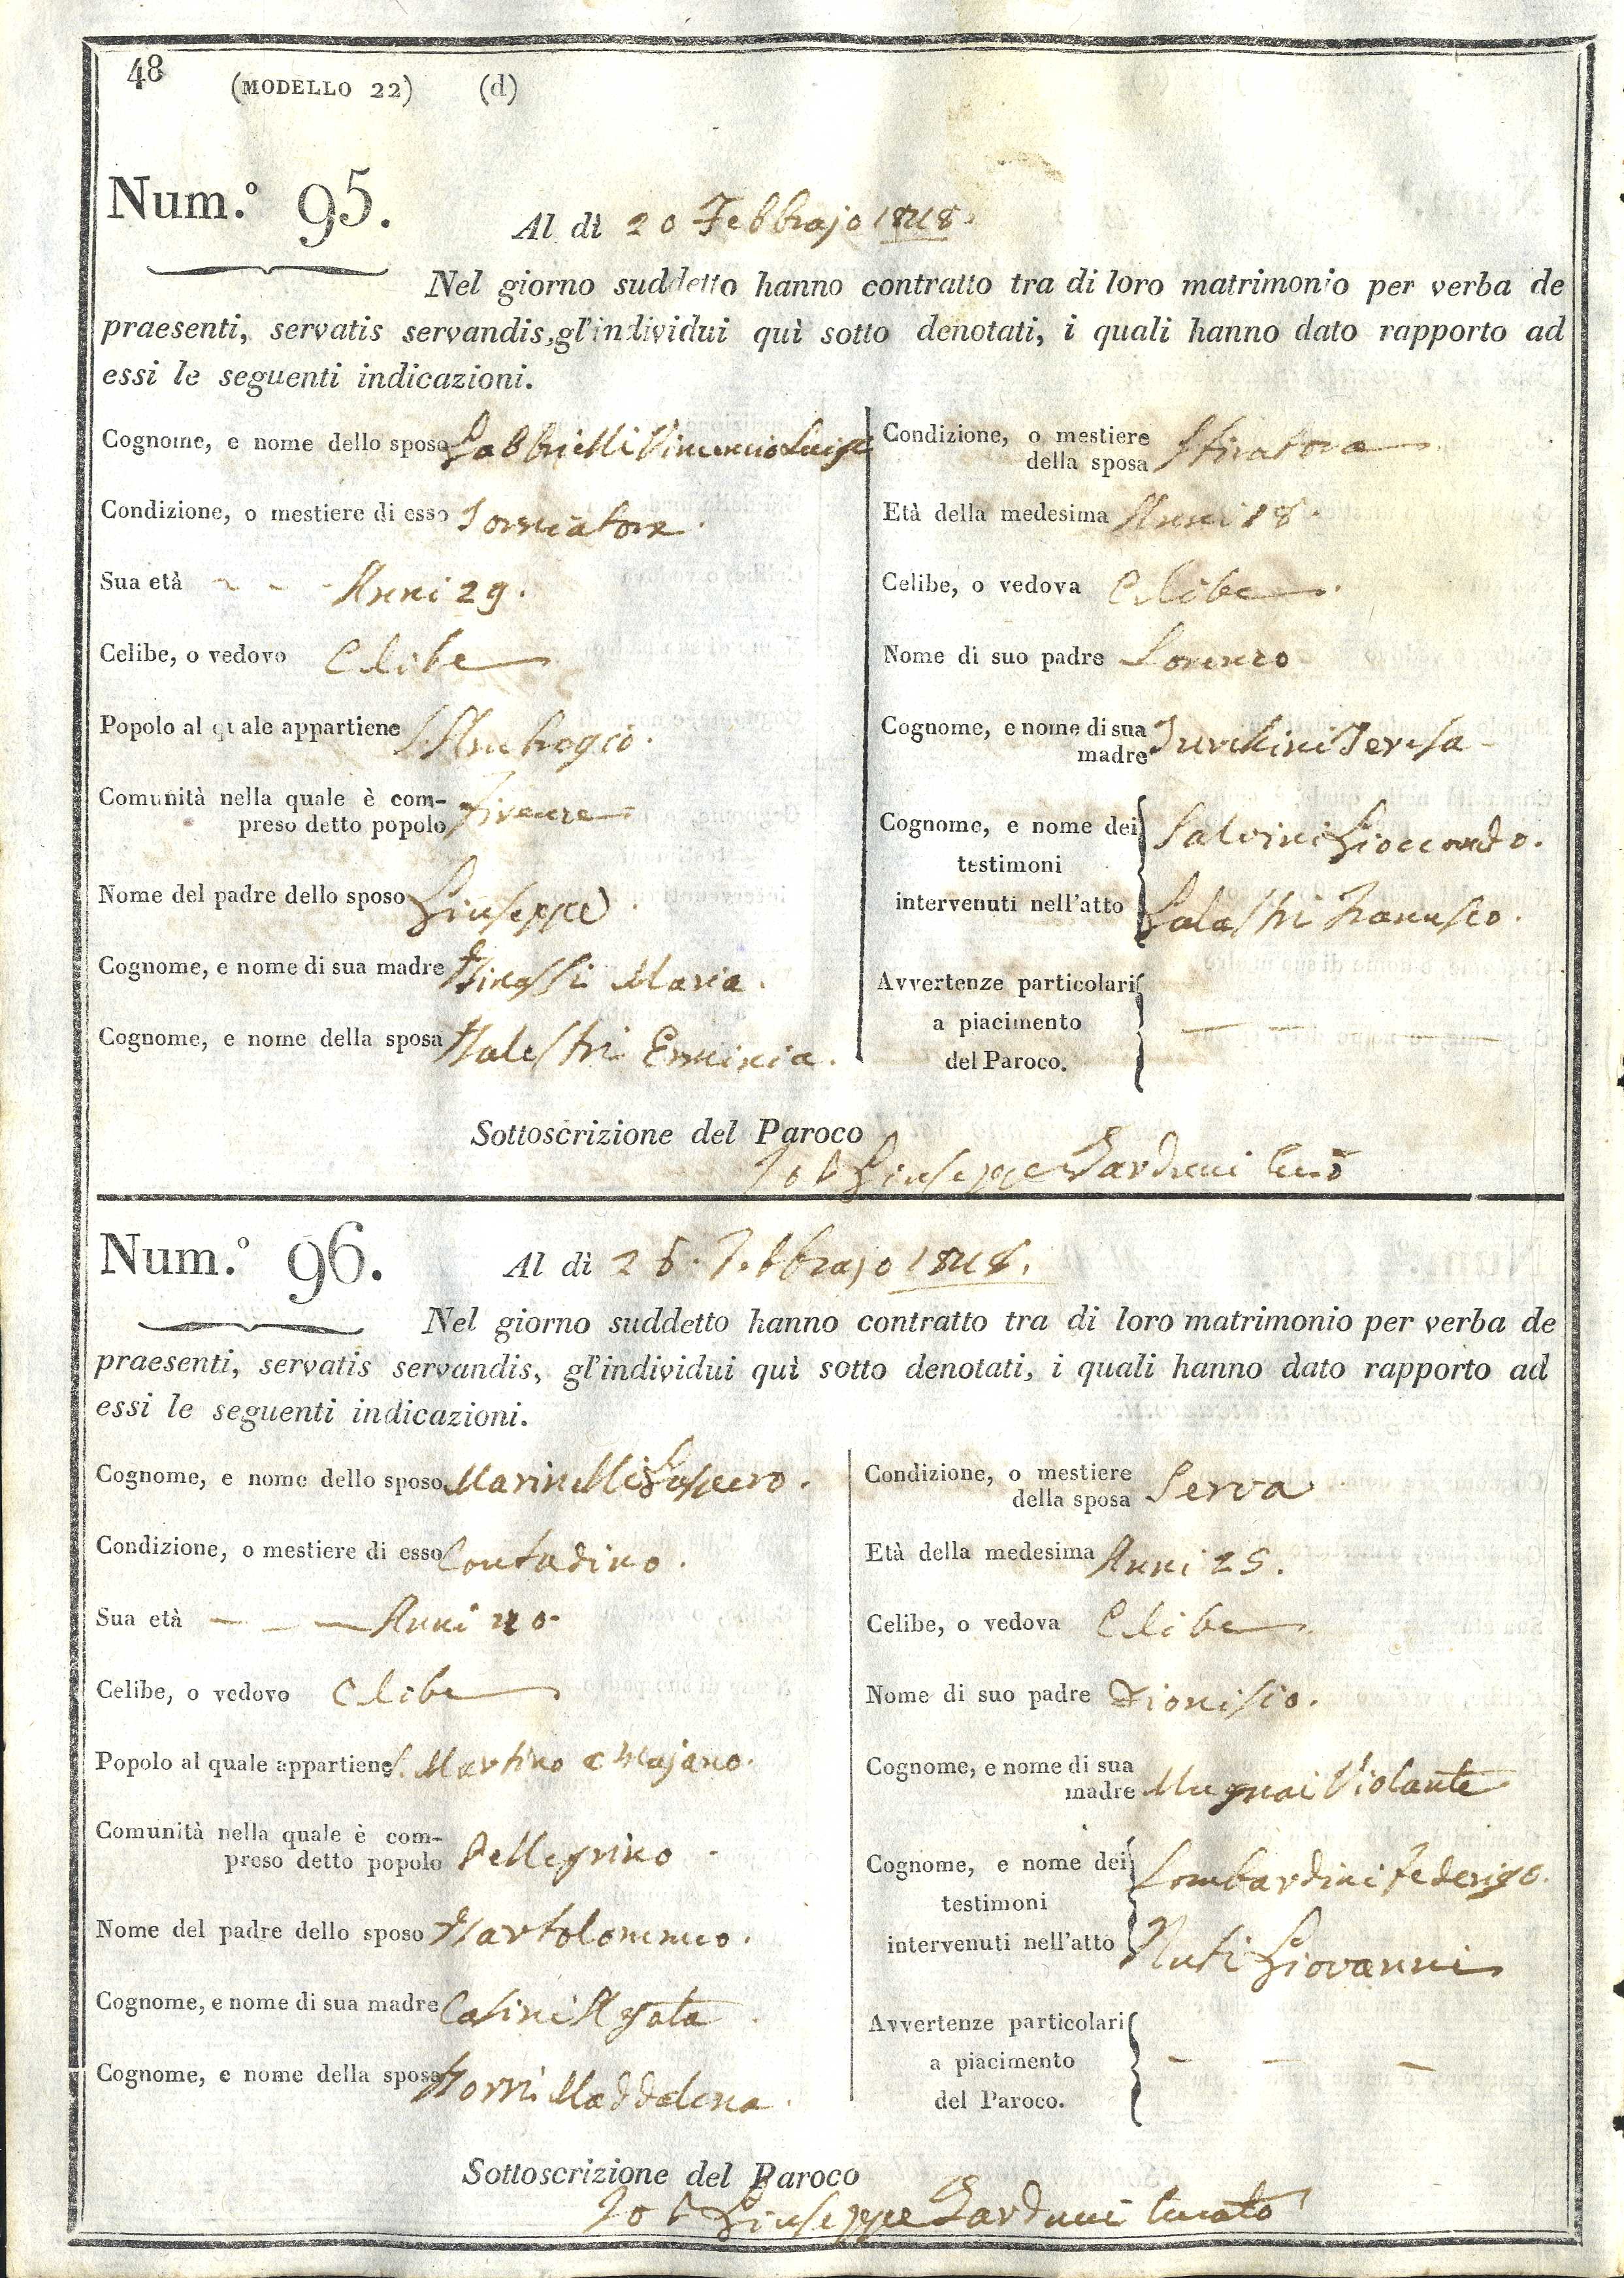 48 (MODELLO 22) (d)
Num.º 95.
Al dì 20 Febbrajo 1848.
Nel giorno suddetto hanno contratto tra di loro matrimonio per verba de
praesenti, servatis servandis, gl'individui quì sotto denotati, i quali hanno dato rapporto ad
essi le seguenti indicazioni.
Cognome, e nome dello sposo Gabbrielli Vincenzio Luigi
Condizione, o mestiere di esso Torniatore.
Sua età - - - Anni 29.
Celibe, o vedovo Celibe
Popolo al quale appartiene S. Ambrogio.
Comunità nella quale è com-
preso detto popolo Firenze
Nome del padre dello sposo Giuseppe.
Cognome, e nome di sua madre Maria.
Cognome, e nome della sposa Balestri Erminia.
Condizione, o mestiere
della sposa Stiratora
Età della medesima Anni 18.
Celibe, o vedova Celibe.
Nome di suo padre Lorenzo
Cognome, e nome di sua
madre Turchini Teresa
Cognome, e nome dei Salvini Gioccondo.
testimoni
intervenuti nell'atto Galastri Francesco.
Avvertenze particolari
a piacimento — — —
del Paroco.
Sottoscrizione del Paroco
Giuseppe
Num.º 96.
Al dì Febbrajo 1848.
Nel giorno suddetto hanno contratto tra di loro matrimonio per verba de
praesenti, servatis servandis, gl'individui quì sotto denotati, i quali hanno dato rapporto ad
essi le seguenti indicazioni.
Cognome, e nome dello sposo Marinelli Gaspero.
Condizione, o mestiere di esso Contadino.
Sua età — — — Anni 40.
Celibe, o vedovo Celibe
Popolo al quale appartiene S. Martino a Majano.
Comunità nella quale è com-
preso detto popolo Pellegrino
Nome del padre dello sposo Bartolommeo.
Cognome, e nome di sua madre Casini Agata
Cognome, e nome della sposa Borri Maddalena.
Condizione, o mestiere
della sposa Serva
Età della medesima Anni 25.
Celibe, o vedova Celibe.
Nome di suo padre Dionisio.
Cognome, e nome di sua
madre Mugnai Violante
Cognome, e nome dei Lombardini Federigo.
testimoni
intervenuti nell'atto Nuti Giovanni
Avvertenze particolari
a piacimento — — —
del Paroco.
Sottoscrizione del Paroco
Giuseppe Curato